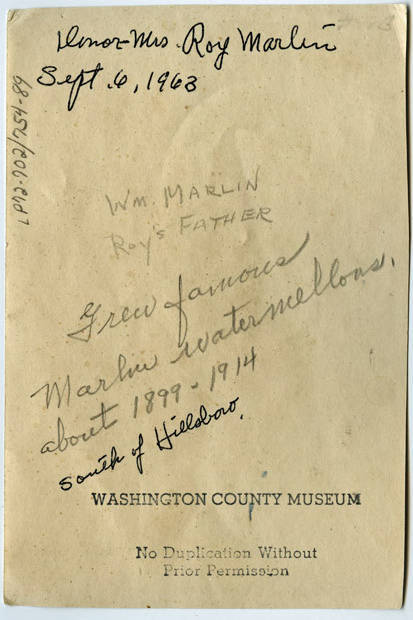 Donor-Mrs. Roy Marlin
Sept. 6, 1963
Wm. MARLIN
ROY'S FATHER
Grew famous
Marlin watermellons.
about 1899-1914
South of Hillsboro.
WASHINGTON COUNTY MUSEUM
No Duplication Without
Prior Permission